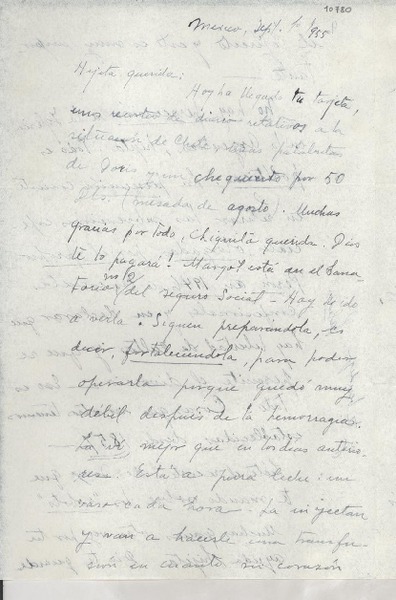 10780
Mexico, Sept. 1955
Hijita querida:
Hoy ha llegado tu tarjeta,
unos recortes de diarios relativos a la
situación de Chile
de Doris chequecito por 50
(mesada de agosto). Muchas
gracias por todo, Chiquita querida. Dios
te lo pagará! Margot está en el Sana-
torio nº 2 del Seguro Social - Hoy he de ir
a verla. Siguen preparándola, es
decir, fortaleciéndola, para poder
operarla porque quedó muy
débil después de la hemorragia.
La vi mejor que en los días anterio-
res. Está a pura leche: un
vaso cada hora. La inyectan
y van a hacerle una transfu-
sión en cuanto su corazón